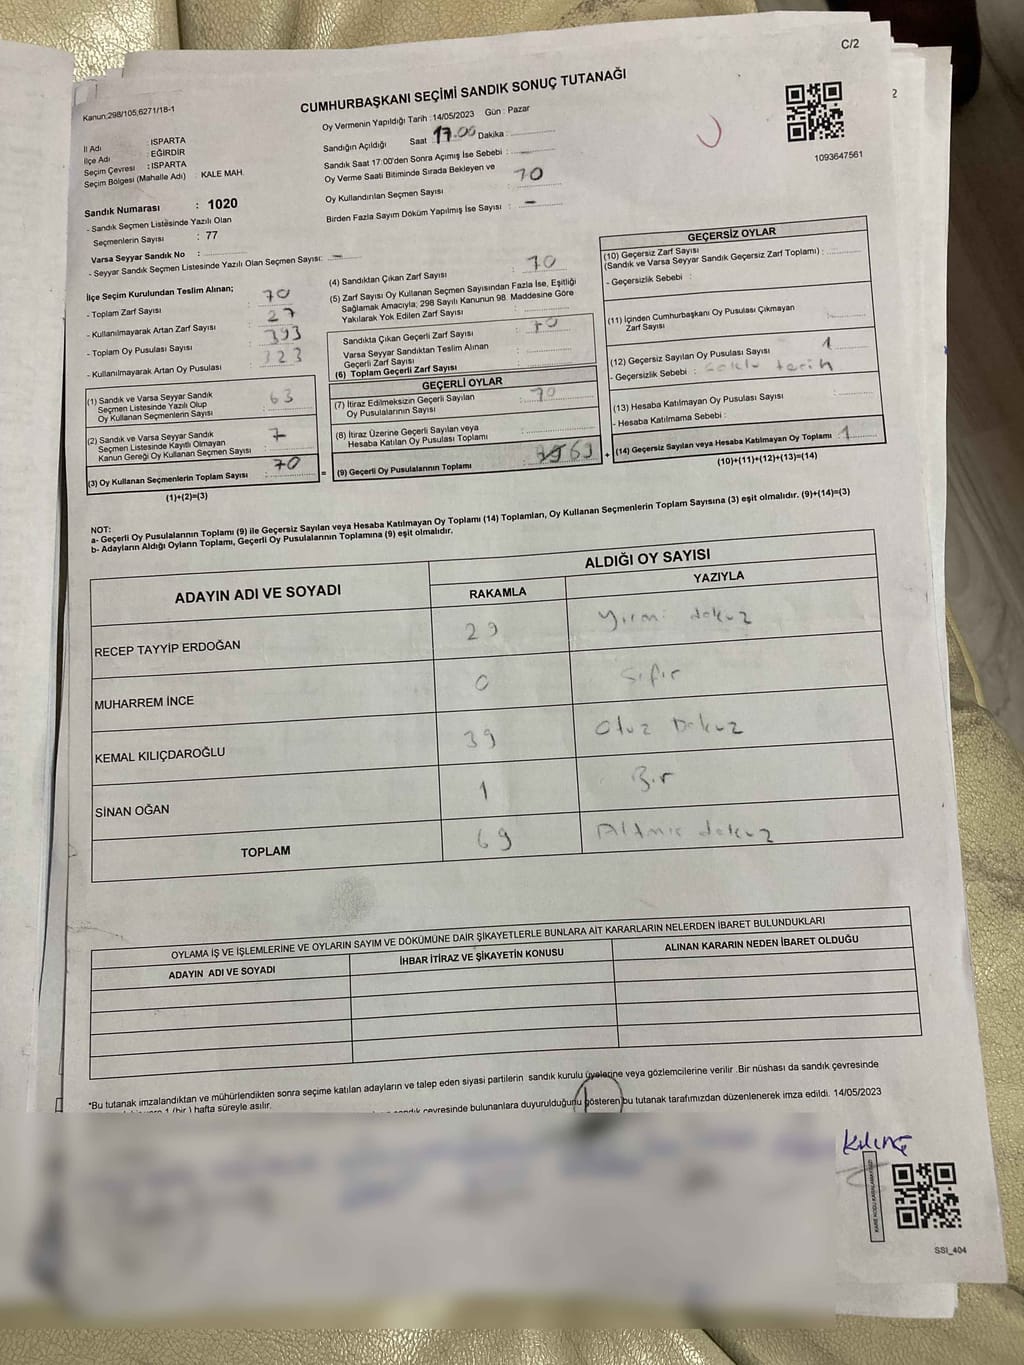 C/2
2
Kanun:298/105;6271/18-1
CUMHURBAŞKANI SEÇİMİ SANDIK SONUÇ TUTANAĞI
1093647561
İl Adı : ISPARTA
İlçe Adı : EĞİRDİR
Seçim Çevresi : ISPARTA
Seçim Bölgesi (Mahalle Adı) : KALE MAH.
Sandık Numarası : 1020
- Sandık Seçmen Listesinde Yazılı Olan
Seçmenlerin Sayısı : 77
Varsa Seyyar Sandık No :
- Seyyar Sandık Seçmen Listesinde Yazılı Olan Seçmen Sayısı: -
Oy Vermenin Yapıldığı Tarih : 14/05/2023 Gün : Pazar
Sandığın Açıldığı Saat 17.00 Dakika :
Sandık Saat 17:00'den Sonra Açımış İse Sebebi : -
Oy Verme Saati Bitiminde Sırada Bekleyen ve
Oy Kullandırılan Seçmen Sayısı : 70
Birden Fazla Sayım Döküm Yapılmış İse Sayısı : -
İlçe Seçim Kurulundan Teslim Alınan;
- Toplam Zarf Sayısı : 70
- Kullanılmayarak Artan Zarf Sayısı : 27
- Toplam Oy Pusulası Sayısı : 393
- Kullanılmayarak Artan Oy Pusulası : 323
(1) Sandık ve Varsa Seyyar Sandık
Seçmen Listesinde Yazılı Olup
Oy Kullanan Seçmenlerin Sayısı : 63
(2) Sandık ve Varsa Seyyar Sandık
Seçmen Listesinde Kayıtlı Olmayan
Kanun Gereği Oy Kullanan Seçmen Sayısı : 7
(3) Oy Kullanan Seçmenlerin Toplam Sayısı : 70
(1)+(2)=(3)
=
(4) Sandıktan Çıkan Zarf Sayısı : 70
(5) Zarf Sayısı Oy Kullanan Seçmen Sayısından Fazla İse, Eşitliği
Sağlamak Amacıyla; 298 Sayılı Kanunun 98. Maddesine Göre
Yakılarak Yok Edilen Zarf Sayısı :
Sandıkta Çıkan Geçerli Zarf Sayısı : 70
Varsa Seyyar Sandıktan Teslim Alınan
Geçerli Zarf Sayısı :
(6) Toplam Geçerli Zarf Sayısı :
GEÇERLİ OYLAR
(7) İtiraz Edilmeksizin Geçerli Sayılan
Oy Pusulalarının Sayısı : 70
(8) İtiraz Üzerine Geçerli Sayılan veya
Hesaba Katılan Oy Pusulası Toplamı :
(9) Geçerli Oy Pusulalarının Toplamı : 69
+
GEÇERSİZ OYLAR
(10) Geçersiz Zarf Sayısı
(Sandık ve Varsa Seyyar Sandık Geçersiz Zarf Toplamı) :
- Geçersizlik Sebebi :
(11) İçinden Cumhurbaşkanı Oy Pusulası Çıkmayan
Zarf Sayısı :
(12) Geçersiz Sayılan Oy Pusulası Sayısı : 1
- Geçersizlik Sebebi :
(13) Hesaba Katılmayan Oy Pusulası Sayısı :
- Hesaba Katılmama Sebebi :
(14) Geçersiz Sayılan veya Hesaba Katılmayan Oy Toplamı : 1
(10)+(11)+(12)+(13)=(14)
NOT:
a- Geçerli Oy Pusulalarının Toplamı (9) ile Geçersiz Sayılan veya Hesaba Katılmayan Oy Toplamı (14) Toplamları, Oy Kullanan Seçmenlerin Toplam Sayısına (3) eşit olmalıdır. (9)+(14)=(3)
b- Adayların Aldığı Oyların Toplamı, Geçerli Oy Pusulalarının Toplamına (9) eşit olmalıdır.
ADAYIN ADI VE SOYADI ALDIĞI OY SAYISI
RAKAMLA YAZIYLA
RECEP TAYYİP ERDOĞAN 29 Yirmi dokuz
MUHARREM İNCE 0 Sıfır
KEMAL KILIÇDAROĞLU 39 Otuz Dokuz
SİNAN OĞAN 1 Bir
TOPLAM 69 Altmış dokuz
OYLAMA İŞ VE İŞLEMLERİNE VE OYLARIN SAYIM VE DÖKÜMÜNE DAİR ŞİKAYETLERLE BUNLARA AİT KARARLARIN NELERDEN İBARET BULUNDUKLARI
ADAYIN ADI VE SOYADI İHBAR İTİRAZ VE ŞİKAYETİN KONUSU ALINAN KARARIN NEDEN İBARET OLDUĞU
*Bu tutanak imzalandıktan ve mühürlendikten sonra seçime katılan adayların ve talep eden siyasi partilerin sandık kurulu üyelerine veya gözlemcilerine verilir .Bir nüshası da sandık çevresinde
1 (bir ) hafta süreyle asılır.
sandık çevresinde bulunanlara duyurulduğunu gösteren bu tutanak tarafımızdan düzenlenerek imza edildi. 14/05/2023
SSI_404